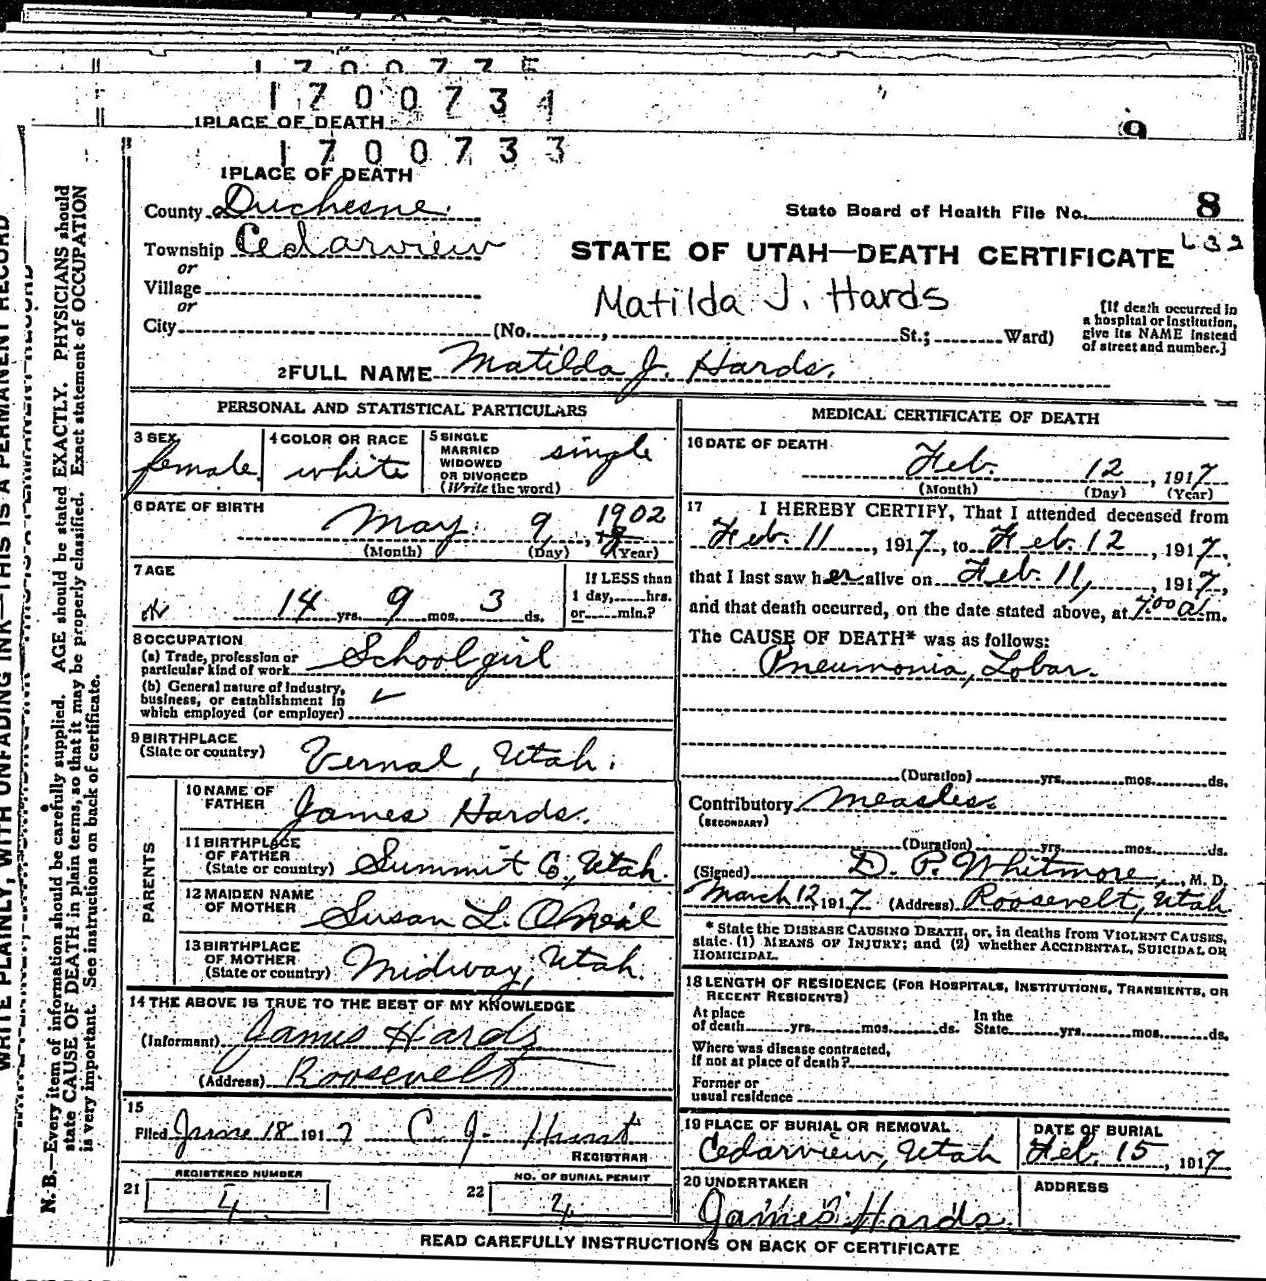 1700735
1700734
1PLACE OF DEATH
9
1700733
1PLACE OF DEATH
County Duchesne.
State Board of Health File No. 8
Township Cedarview
STATE OF UTAH—DEATH CERTIFICATE 632
or
Village
or
Matilda J. Hards
City (No. , St.; Ward)
[If death occurred in
a hospital or institution,
give its NAME instead
of street and number.]
2FULL NAME Matilda J. Hards.
PERSONAL AND STATISTICAL PARTICULARS
3 SEX
female.
4 COLOR OR RACE
white
5 SINGLE
MARRIED
WIDOWED
OR DIVORCED
(Write the word)
single
6 DATE OF BIRTH
May 9, 1902
(Month) (Day) (Year)
7 AGE
14 yrs. 9 mos. 3 ds.
If LESS than
1 day, hrs.
or min.?
8 OCCUPATION
(a) Trade, profession or
particular kind of work Schoolgirl
(b) General nature of industry,
business, or establishment in
which employed (or employer)
9 BIRTHPLACE
(State or country) Vernal, Utah.
PARENTS
10 NAME OF
FATHER James Hards.
11 BIRTHPLACE
OF FATHER
(State or country) Summit Co., Utah.
12 MAIDEN NAME
OF MOTHER Susan L. O'Neil
13 BIRTHPLACE
OF MOTHER
(State or country) Midway, Utah.
14 THE ABOVE IS TRUE TO THE BEST OF MY KNOWLEDGE
(Informant) James Hards
(Address) Roosevelt
15
Filed June 18 1917 C. J. Hunt
REGISTRAR
REGISTERED NUMBER
21 4
NO. OF BURIAL PERMIT
22 4
MEDICAL CERTIFICATE OF DEATH
16 DATE OF DEATH
Feb. 12, 1917
(Month) (Day) (Year)
17 I HEREBY CERTIFY, That I attended deceased from
Feb. 11, 1917, to Feb. 12, 1917,
that I last saw her alive on Feb. 11, 1917,
and that death occurred, on the date stated above, at 7:00 a.m.
The CAUSE OF DEATH* was as follows:
Pneumonia, Lobar.
(Duration) yrs. mos. ds.
Contributory Measles.
(SECONDARY)
(Duration) yrs. mos. ds.
(Signed) D. P. Whitmore, M. D.
March 12, 1917 (Address) Roosevelt, Utah
* State the DISEASE CAUSING DEATH, or, in deaths from VIOLENT CAUSES,
state (1) MEANS OF INJURY; and (2) whether ACCIDENTAL, SUICIDAL OR
HOMICIDAL.
18 LENGTH OF RESIDENCE (FOR HOSPITALS, INSTITUTIONS, TRANSIENTS, OR
RECENT RESIDENTS)
At place
of death yrs. mos. ds.
In the
State yrs. mos. ds.
Where was disease contracted,
if not at place of death?
Former or
usual residence
19 PLACE OF BURIAL OR REMOVAL
Cedarview, Utah
DATE OF BURIAL
Feb. 15, 1917
20 UNDERTAKER
James Hards.
ADDRESS
READ CAREFULLY INSTRUCTIONS ON BACK OF CERTIFICATE
WRITE PLAINLY, WITH UNFADING INK—THIS IS A PERMANENT RECORD
N. B.—Every item of information should be carefully supplied. AGE should be stated EXACTLY. PHYSICIANS should
state CAUSE OF DEATH in plain terms, so that it may be properly classified. Exact statement of OCCUPATION
is very important. See instructions on back of certificate.